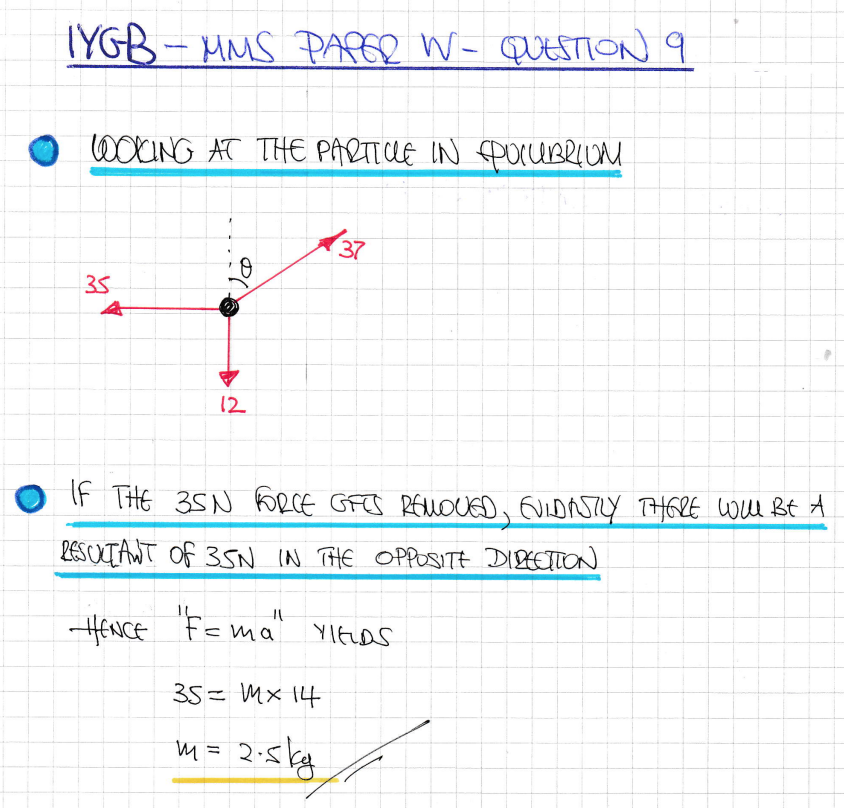 IYGB – MMS PAPER W – QUESTION 9
LOOKING AT THE PARTICLE IN EQUILIBRIUM
θ
37
35
12
IF THE 35N FORCE GETS REMOVED, EVIDENTLY THERE WILL BE A
RESULTANT OF 35N IN THE OPPOSITE DIRECTION
HENCE "F = ma" YIELDS
35 = m × 14
m = 2.5 kg